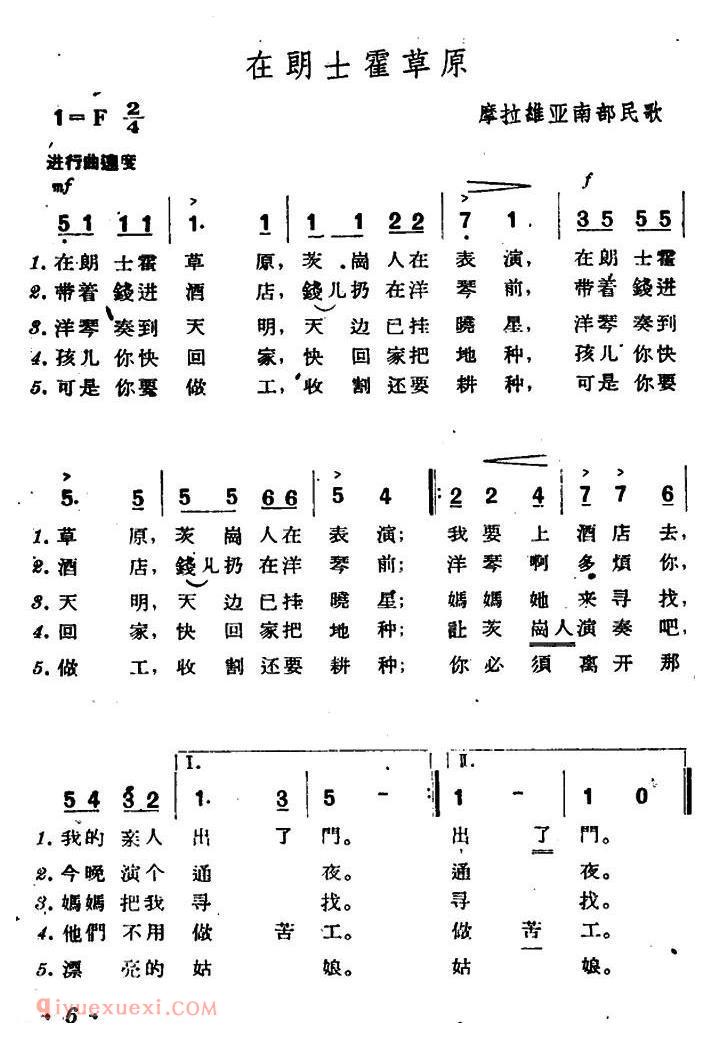 在朗士霍草原
1=F 2/4
摩拉雄亚南部民歌
进行曲速度
mf f
5 1 1 1 | 1. 1 | 1 1 2 2 | 7 1. | 3 5 5 5 |
1. 在朗士霍草原，茨崗人在表演，在朗士霍
2. 带着錢进酒店，錢儿扔在洋琴前，带着錢进
3. 洋琴奏到天明，天边已挂曉星，洋琴奏到
4. 孩儿你快回家，快回家把地种，孩儿你快
5. 可是你要做工，收割还要耕种，可是你要
5. 5 | 5 5 6 6 | 5 4 :||: 2 2 4 | 7 7 6 |
1. 草原，茨崗人在表演；我要上酒店去，
2. 酒店，錢儿扔在洋琴前；洋琴啊多煩你，
3. 天明，天边已挂曉星；媽媽她来寻找，
4. 回家，快回家把地种；讓茨崗人演奏吧，
5. 做工，收割还要耕种；你必須离开那
I. II.
5 4 3 2 | 1. 3 | 5 - :|| 1 - | 1 0 ||
1. 我的亲人出了門。出了門。
2. 今晚演个通夜。通夜。
3. 媽媽把我寻找。寻找。
4. 他們不用做苦工。做苦工。
5. 漂亮的姑娘。姑娘。
qiyuexuexi.com
· 6 ·